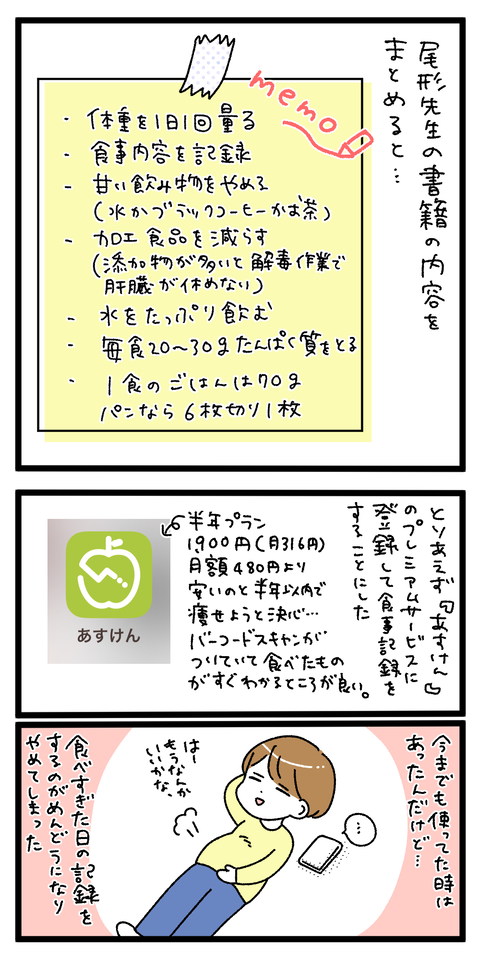 尾形先生の書籍の内容を
まとめると…
memo
・体重を1日1回量る
・食事内容を記録
・甘い飲み物をやめる
（水かブラックコーヒーかお茶）
・加工食品を減らす
（添加物が多いと解毒作業で
肝臓が休めない）
・水をたっぷり飲む
・毎食20〜30gたんぱく質をとる
・1食のごはんは70g
パンなら6枚切り1枚
とりあえず『あすけん』
のプレミアムサービスに
登録して食事記録を
することにした
半年プラン
1,900円（月316円）
月額480円より
安いのと半年以内で
痩せようと決心…
バーコードスキャンが
ついていて食べたもの
がすぐわかるところが良い。
あすけん
今までも使ってた時は
あったんだけど…
…
はー
もうなんか
いいかな、
食べすぎた日の記録を
するのがめんどうになり
やめてしまった